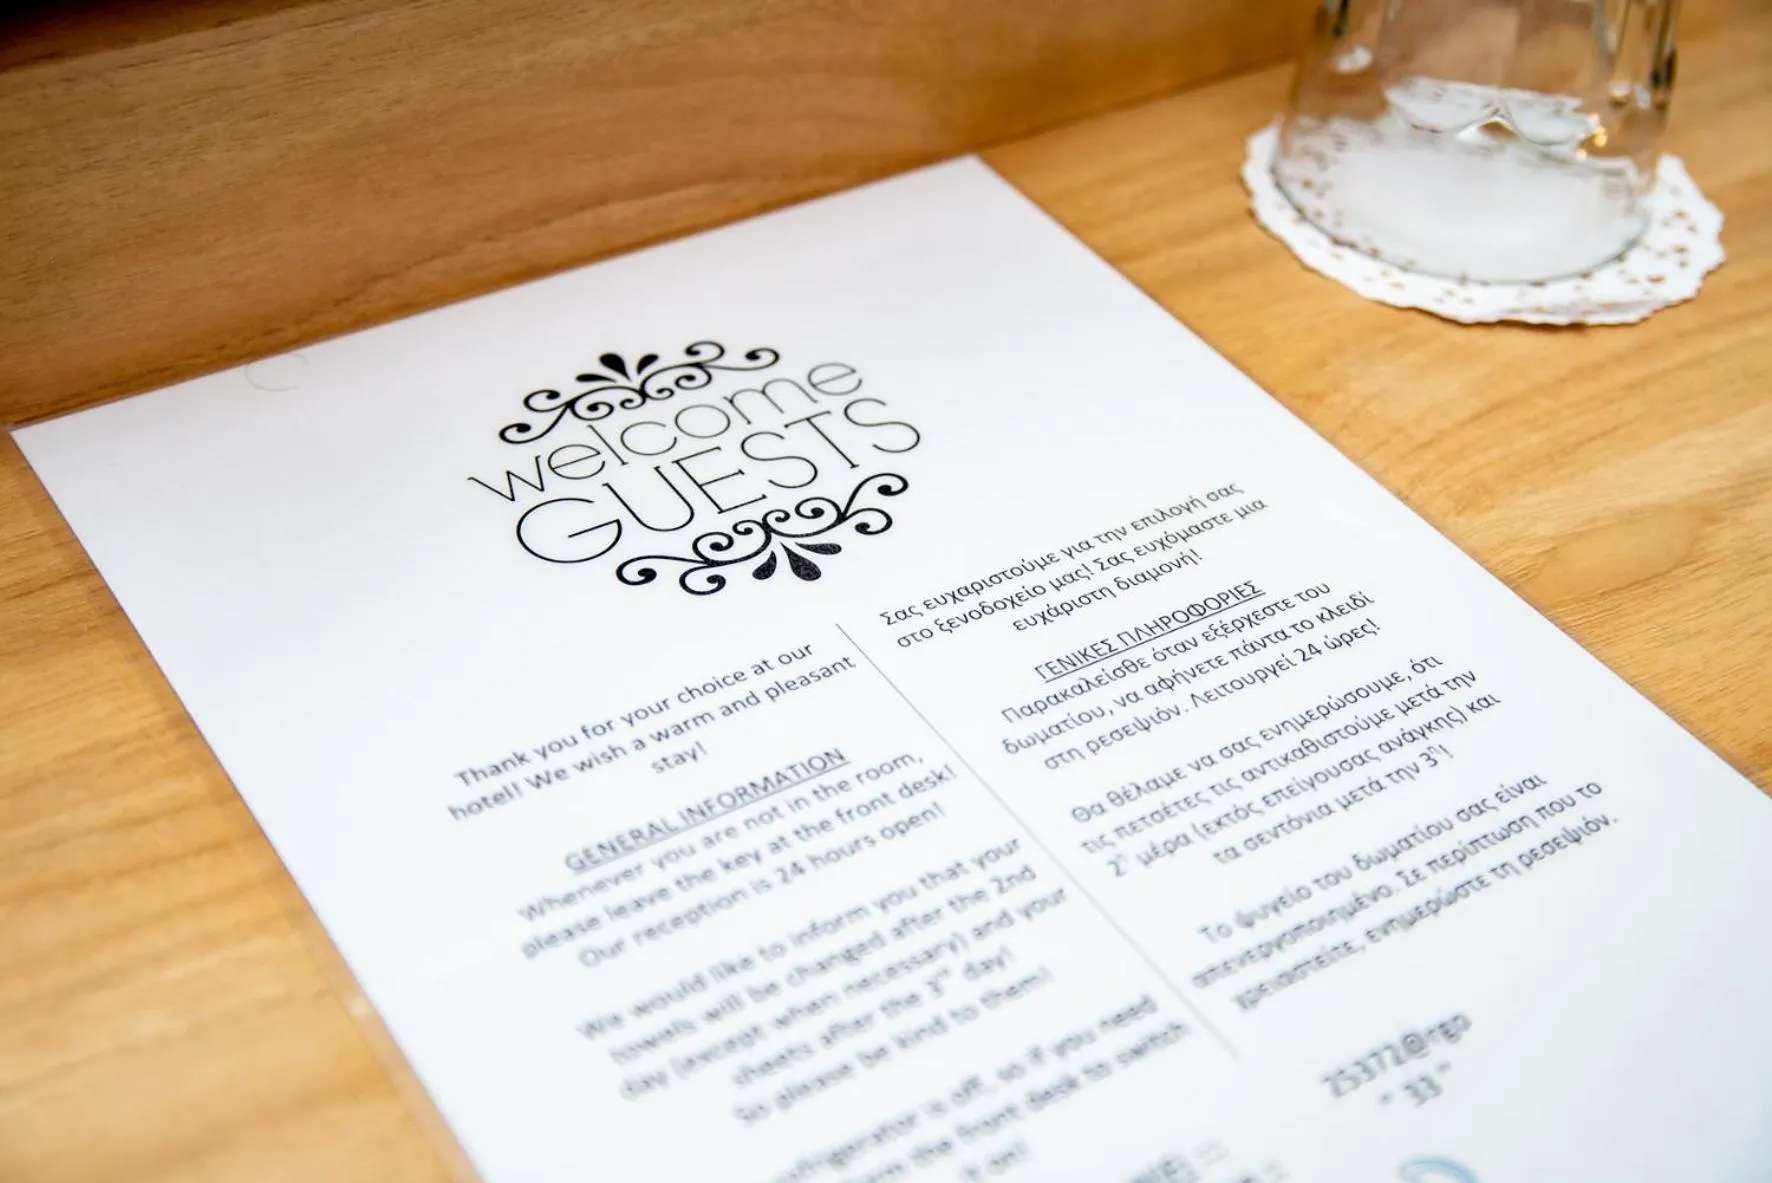 welcome
GUESTS
Thank you for your choice at our
hotel! We wish a warm and pleasant
stay!
GENERAL INFORMATION
Whenever you are not in the room,
please leave the key at the front desk!
Our reception is 24 hours open!
We would like to inform you that your
towels will be changed after the 2nd
day (except when necessary) and your
sheets after the 3rd day!
So please be kind to them!
refrigerator is off, so if you need
the front desk to switch
it on!
Σας ευχαριστούμε για την επιλογή σας
στο ξενοδοχείο μας! Σας ευχόμαστε μια
ευχάριστη διαμονή!
ΓΕΝΙΚΕΣ ΠΛΗΡΟΦΟΡΙΕΣ
Παρακαλείσθε όταν εξέρχεστε του
δωματίου, να αφήνετε πάντα το κλειδί
στη ρεσεψιόν. Λειτουργεί 24 ώρες!
Θα θέλαμε να σας ενημερώσουμε, ότι
τις πετσέτες τις αντικαθιστούμε μετά την
2η μέρα (εκτός επείγουσας ανάγκης) και
τα σεντόνια μετά την 3η!
Το ψυγείο του δωματίου σας είναι
απενεργοποιημένο. Σε περίπτωση που το
χρειαστείτε, ενημερώστε τη ρεσεψιόν.
25372@rgo
" 33 "